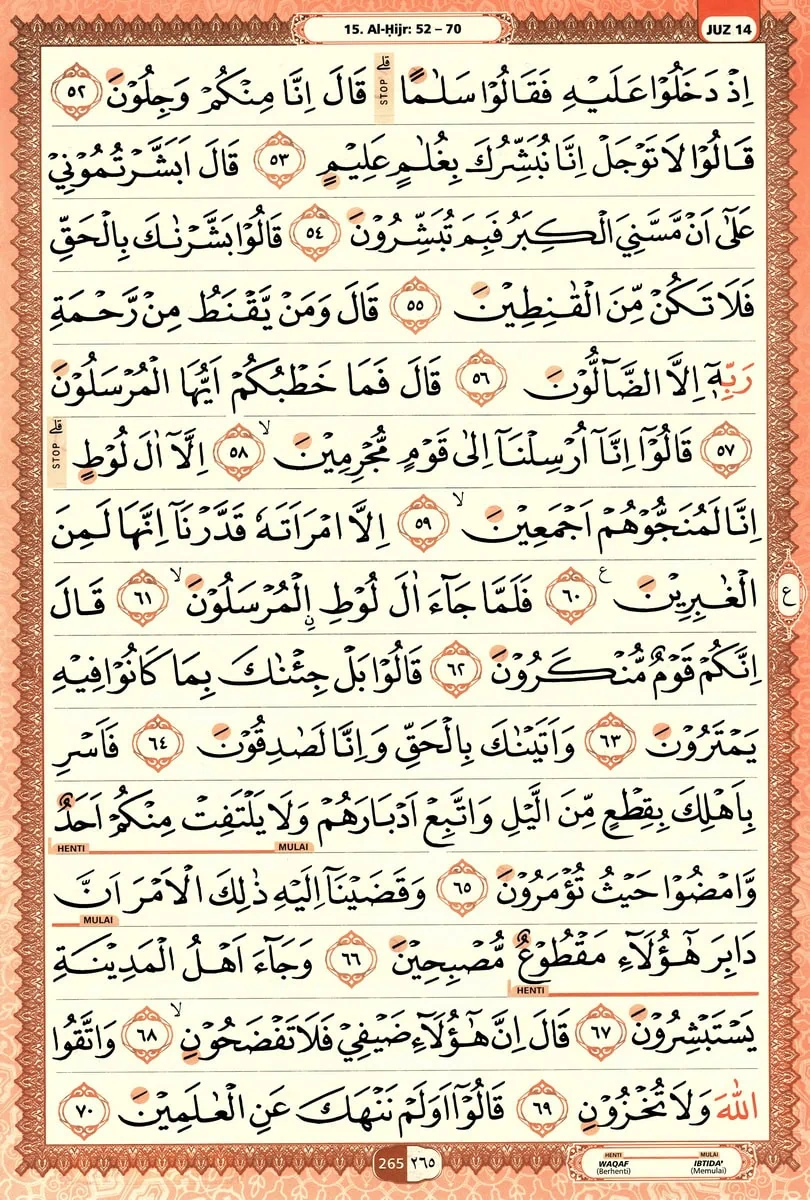 15. Al-Ḥijr: 52 – 70
JUZ 14
اِذْ دَخَلُوْا عَلَيْهِ فَقَالُوْا سَلٰمًا ۗ STOP قَالَ اِنَّا مِنْكُمْ وَجِلُوْنَ ٥٢
قَالُوْا لَا تَوْجَلْ اِنَّا نُبَشِّرُكَ بِغُلٰمٍ عَلِيْمٍ ٥٣ قَالَ اَبَشَّرْتُمُوْنِيْ
عَلٰٓى اَنْ مَّسَّنِيَ الْكِبَرُ فَبِمَ تُبَشِّرُوْنَ ٥٤ قَالُوْا بَشَّرْنٰكَ بِالْحَقِّ
فَلَا تَكُنْ مِّنَ الْقٰنِطِيْنَ ٥٥ قَالَ وَمَنْ يَّقْنَطُ مِنْ رَّحْمَةِ
رَبِّهٖٓ اِلَّا الضَّاۤلُّوْنَ ٥٦ قَالَ فَمَا خَطْبُكُمْ اَيُّهَا الْمُرْسَلُوْنَ
٥٧ قَالُوْٓا اِنَّآ اُرْسِلْنَآ اِلٰى قَوْمٍ مُّجْرِمِيْنَۙ ٥٨ اِلَّآ اٰلَ لُوْطٍۗ STOP
اِنَّا لَمُنَجُّوْهُمْ اَجْمَعِيْنَۙ ٥٩ اِلَّا امْرَاَتَهٗ قَدَّرْنَآ اِنَّهَا لَمِنَ
الْغٰبِرِيْنَ ࣖ ٦٠ فَلَمَّا جَاۤءَ اٰلَ لُوْطِ ِۨالْمُرْسَلُوْنَۙ ٦١ قَالَ
ع
اِنَّكُمْ قَوْمٌ مُّنْكَرُوْنَ ٦٢ قَالُوْا بَلْ جِئْنٰكَ بِمَا كَانُوْا فِيْهِ
يَمْتَرُوْنَ ٦٣ وَاَتَيْنٰكَ بِالْحَقِّ وَاِنَّا لَصٰدِقُوْنَ ٦٤ فَاَسْرِ
بِاَهْلِكَ بِقِطْعٍ مِّنَ الَّيْلِ وَاتَّبِعْ اَدْبَارَهُمْ وَلَا يَلْتَفِتْ مِنْكُمْ اَحَدٌ
MULAI HENTI
وَّامْضُوْا حَيْثُ تُؤْمَرُوْنَ ٦٥ وَقَضَيْنَآ اِلَيْهِ ذٰلِكَ الْاَمْرَ اَنَّ
MULAI
دَابِرَ هٰٓؤُلَاۤءِ مَقْطُوْعٌ مُّصْبِحِيْنَ ٦٦ وَجَاۤءَ اَهْلُ الْمَدِيْنَةِ
HENTI
يَسْتَبْشِرُوْنَ ٦٧ قَالَ اِنَّ هٰٓؤُلَاۤءِ ضَيْفِيْ فَلَا تَفْضَحُوْنِۙ ٦٨ وَاتَّقُوا
اللّٰهَ وَلَا تُخْزُوْنِ ٦٩ قَالُوْٓا اَوَلَمْ نَنْهَكَ عَنِ الْعٰلَمِيْنَ ٧٠
265 ٢٦٥
HENTI MULAI
WAQAF IBTIDA'
(Berhenti) (Memulai)